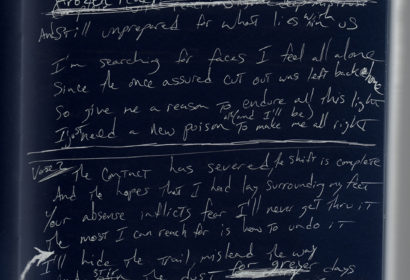 And still unprepared for what lies within us
I'm searching for faces I feel all alone
Since the once assured cut out was left back home
So give me a reason to endure all this light
(and I'll be)
I just need a new poison to make me all right
Verse 2
The contact has severed, the shift is complete
And the hopes that I had lay surrounding my feet
Your absence inflicts fear I'll never get thru it
The most I can reach for is how to undo it
I'll hide the trail, mislead the way
And stir the dust for greyer days